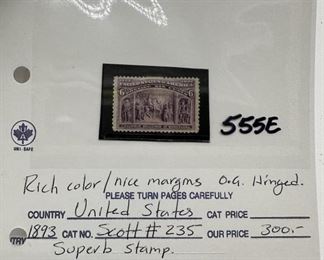 UNITED STATES OF AMERICA
6 6
555E
UNI-SAFE
Rich color/nice margins O.G. Hinged.
PLEASE TURN PAGES CAREFULLY
COUNTRY United States CAT PRICE
TRY 1893 CAT NO. Scott # 235 OUR PRICE 300.-
Superb Stamp.